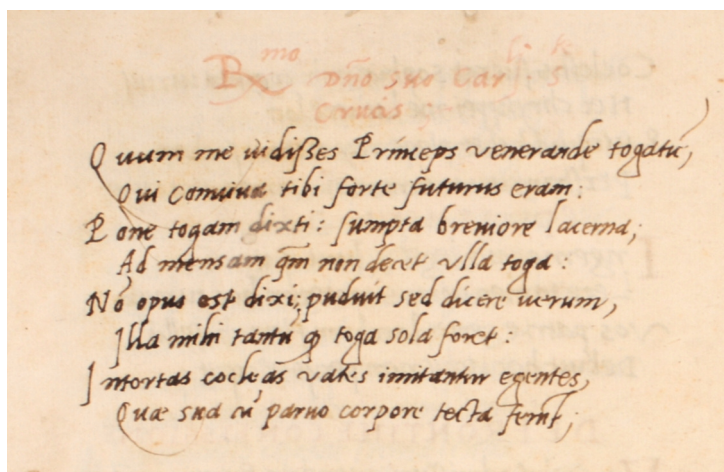 Rmo Dño suo Carli S. †
Crucis
Quum me uidisses Princeps venerande togatū,
Qui conuiua tibi forte futurus eram:
Pone togam dixti: sumpta breuiore lacerna,
Ad mensam qm̄ non decet vlla toga:
Nō opus est dixi; puduit sed dicere uerum,
Illa mihi tantū q̃ toga sola foret:
Intortas cocleas vates imitantur egentes,
Quæ sua cū paruo corpore tecta ferūt;